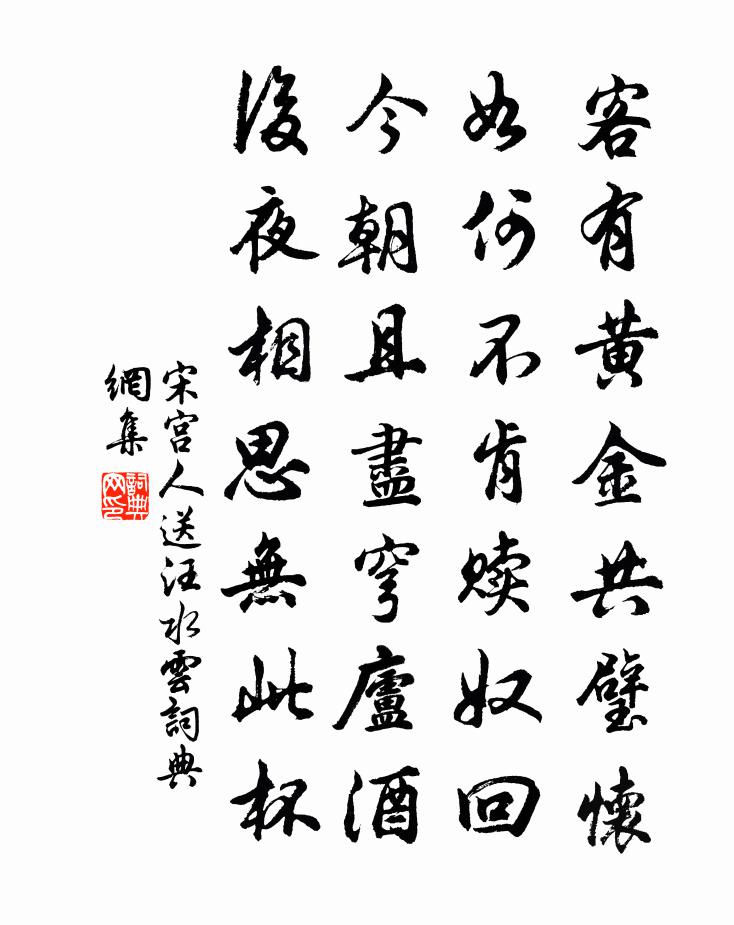 客有黄金共璧懷
如何不肯赎奴回
今朝且盡穹廬酒
後夜相思無此杯
宋宫人送汪水雲詞典
網集
詞典
网印